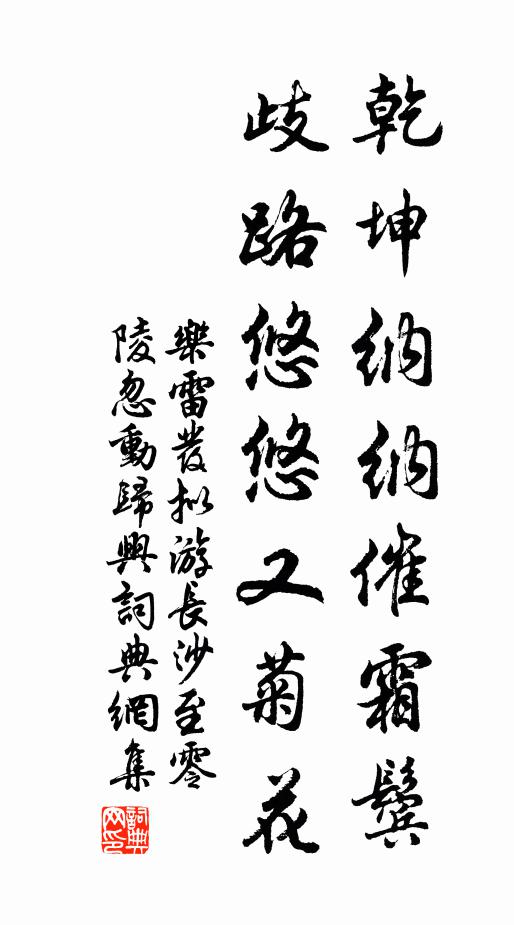 乾坤納納催霜鬢
歧路悠悠又菊花
樂雷發拟游長沙至零
陵忽動歸興詞典網集
詞典
网印